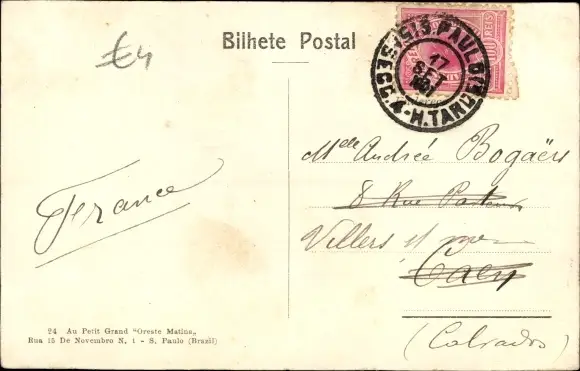 £4
Bilhete Postal
S. PAULO
17
SET
SECC. 4 - H. TARDE
100 REIS
Mlle Andrée Bogaërs
8 Rue Pasteur
Villers s/ mer
Caen
(Calvados)
France
24 Au Petit Grand "Oreste Matiña"
Rua 15 De Novembro N. 1 - S. Paulo (Brazil)